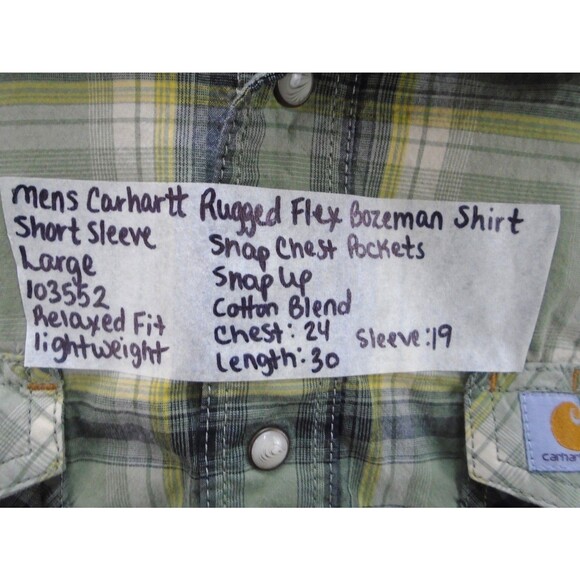 mens Carhartt Rugged Flex Bozeman Shirt
Short Sleeve
Large
103552
Relaxed Fit
lightweight
Snap Chest Pockets
Snap Up
Cotton Blend
Chest: 24 Sleeve: 19
Length: 30